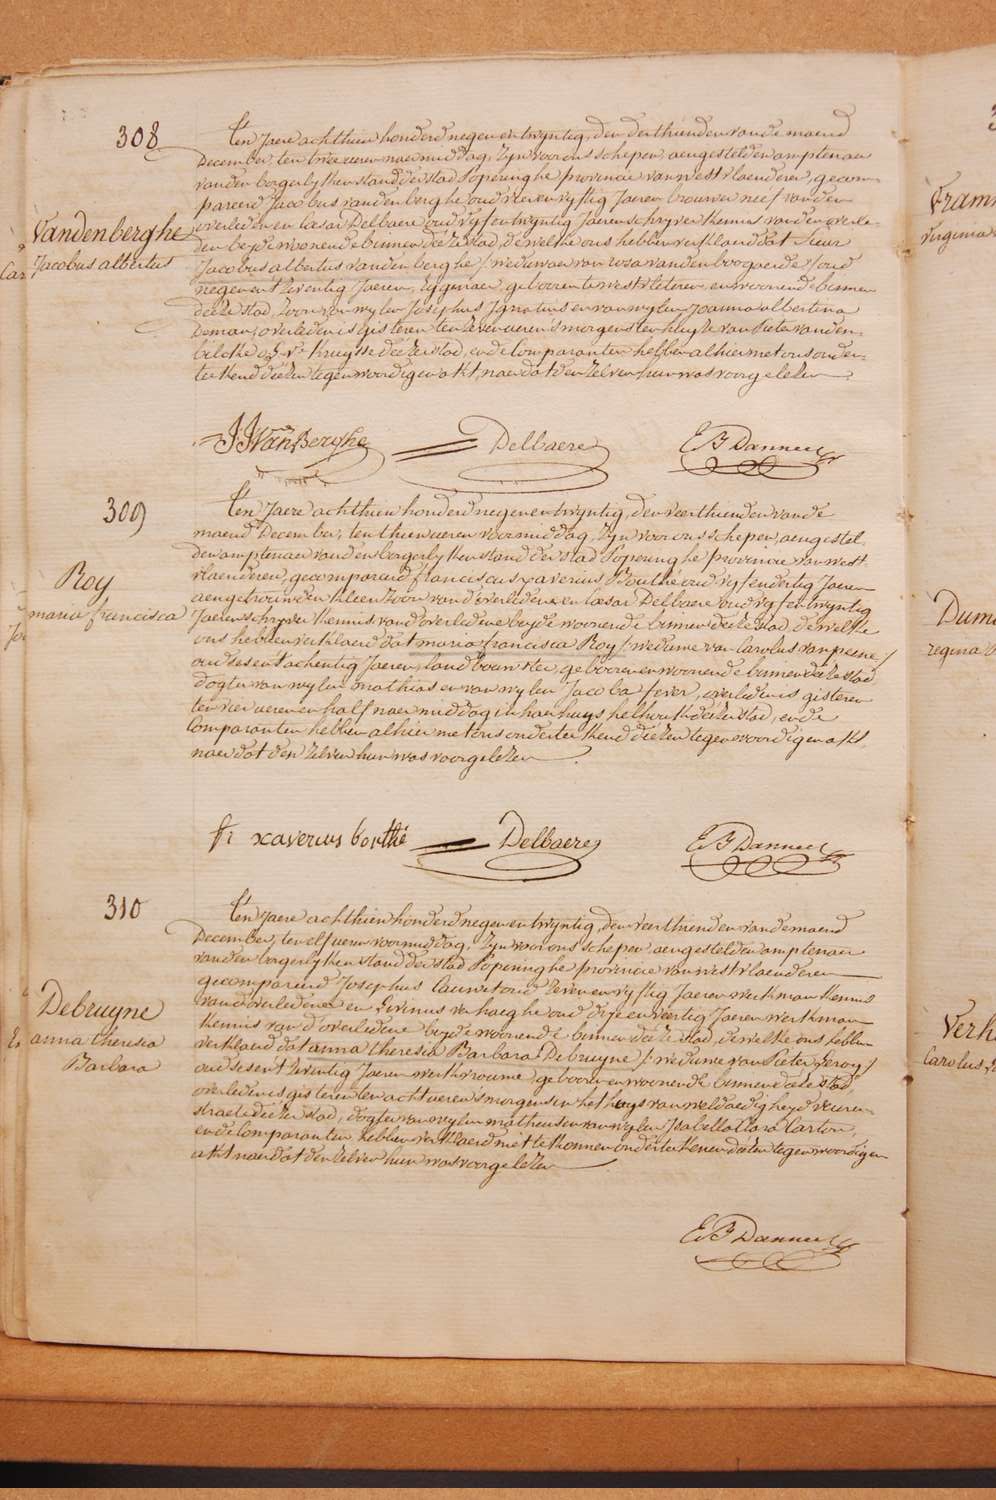 308
Ten Jaere achthien honderd negen en twyntig, den derthienden van de maend
December, ten twee ueren naermiddag, Zyn voor ons schepen, aengestelden amptenaer
van den borgerlyken stand der stad Poperinghe provincie van westvlaenderen, gecom-
pareerd Jacobus vandenberghe oud vier en vyftig Jaeren brouwer neef van den
overledenen en Caesar Delbaere oud vyf en twyntig Jaeren schryver kennis van den overle-
den beyde woonende binnen deeze stad, de welke ons hebben verklaerd dat Sieur
Vandenberghe
Jacobus albertus
Jacobus albertus vanden berghe / weduwaer van rosa vanden boogaerde / oud
negen en t'zeventig Jaeren, Eygenaer, geboren te westvleteren, en woonende binnen
deeze stad, zoon van wylen Josephus Ignatius en van wylen Joanna albertina
Deman, overleden is gisteren ten zeven ueren 's morgens ten huyze van Pieter vanden-
bilcke op de Kruysse deezer stad, en de Comparanten hebben alhier met ons onder-
teekend deezen tegenwoordigen akt, naer dat den zelven hun was voorgelezen.
JJVanBerghe Delbaere E B Danneel
309
Ten Jaere achthien honderd negen en twyntig, den veerthienden van de
maend December, ten thien ueren voormiddag, Zyn voor ons schepen, aengestel-
den amptenaer van den borgerlyken stand der stad Poperinghe provincie van west-
vlaenderen, gecompareerd franciscus xaverius Bouthé oud vyf en dertig Jaeren
Roy
maria francisca
aengetrouwden kleenzoon van d'overledene en Caesar Delbaere oud vyf en twyntig
Jaeren schryver kennis van d'overledene beyde woonende binnen deeze stad, de welke
ons hebben verklaerd dat maria francisca Roy / weduwe van Carolus van pesne /
oud ses en t'achentig Jaeren, landbouwster, geboren en woonende binnen deeze stad
dogter van wylen mathias en van wylen Jacoba fever, overleden is gisteren
ten vier ueren en half naermiddag in haer huys helhoek deezer stad, en de
Comparanten hebben alhier met ons onderteekend deezen tegenwoordigen akt,
naer dat den zelven hun was voorgelezen.
fr xaverius bouthé Delbaere E B Danneel
310
Ten Jaere achthien honderd negen en twyntig, den veerthienden van de maend
December, ten elf ueren voormiddag, Zyn voor ons schepen aengestelden amptenaer
van den borgerlyken stand der stad Poperinghe provincie van westvlaenderen
gecompareerd Josephus Cauwet oud zeven en vyftig Jaeren werkman kennis
Debruyne
anna theresia
Barbara
van d'overledene en Livinus verhaeghe oud drye en veertig Jaeren werkman
kennis van d'overledene beyde woonende binnen deeze stad, de welke ons hebben
verklaerd dat anna theresia Barbara Debruyne / weduwe van Pieter Leroy /
oud ses en t'zeventig Jaeren werkvrouwe, geboren en woonende binnen deeze stad,
overleden is gisteren ten acht ueren 's morgens in het huys van weldaedigheyd veuren-
straete deezer stad, dogter van wylen matheus en van wylen Isabella Clara Carton,
en de Comparanten hebben verklaerd niet te konnen onderteekenen deezen tegenwoordigen
akt naer dat den zelven hun was voorgelezen
E B Danneel
virginia
Dum
regina
Verh
Carolus